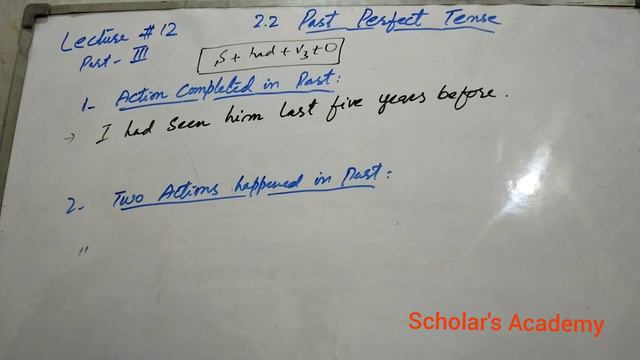 Lecture # 12
2.2 Past Perfect Tense
Part - III
S + had + V₃ + O
1- Action Completed in Past:
→ I had seen him last five years before.
2- Two Actions happened in Past:
"
Scholar's Academy